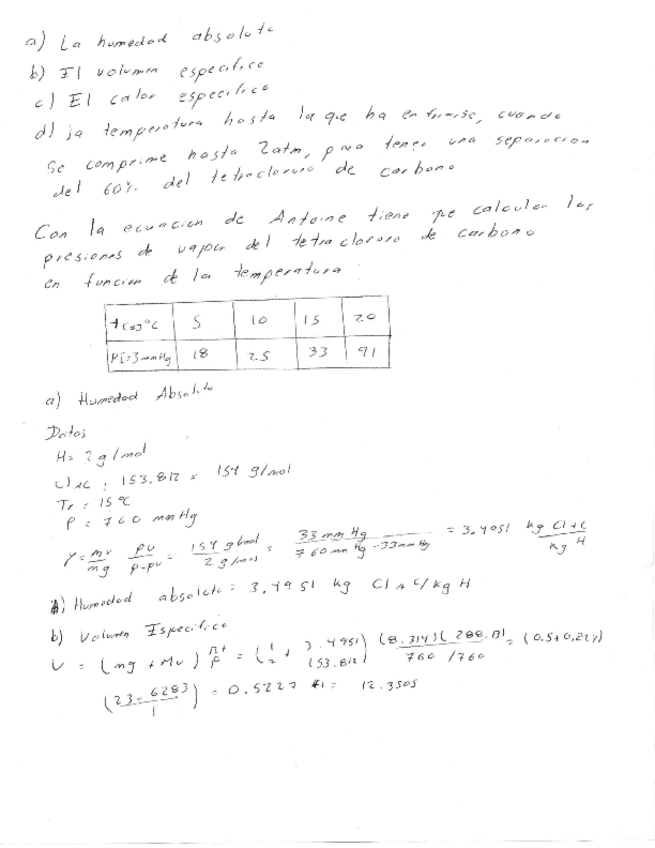 a) La humedad absoluta
b) El volumen especifico
c) El calor especifico
d) ja temperatura hasta la que ha enfriarse, cuando
se comprime hasta 2atm, para tener una separacion
del 60% del tetracloruro de carbono
Con la ecuacion de Antoine tiene que calcular las
presiones de vapor del tetracloruro de carbono
en funcion de la temperatura:
t[=]°C 5 10 15 20
P[=]mmHg 18 25 33 91
a) Humedad Absoluta
Datos
H= 2g/mol
Cl4C: 153.812 = 154 g/mol
Tr = 15°C
P = 760 mmHg
Y = mv/mg pv/p-pv = 154 g/mol / 2 g/mol = 33 mm Hg / 760 mm Hg - 33 mm Hg = 3.4951 kg Cl4C / kg H
a) Humedad absoluta = 3.4951 kg Cl4C/kg H
b) Volumen Especifico
V = (mg + Mv) nt/p = (1/2 + 3.4951/153.812) (8.314)(288.13)/760/760 = (0.5+0.227)
(23.6283/1) = 0.5227 = 12.3505